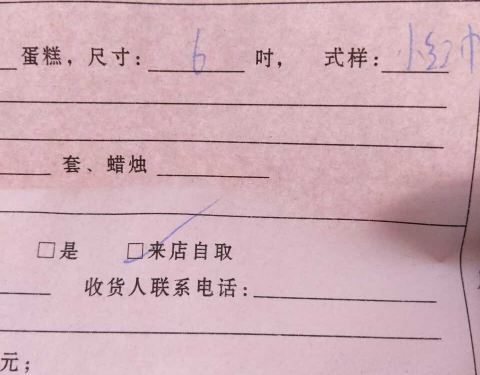 蛋糕，尺寸：6吋，式样：小红巾
套、蜡烛
□是 ☑来店自取
收货人联系电话：
元；